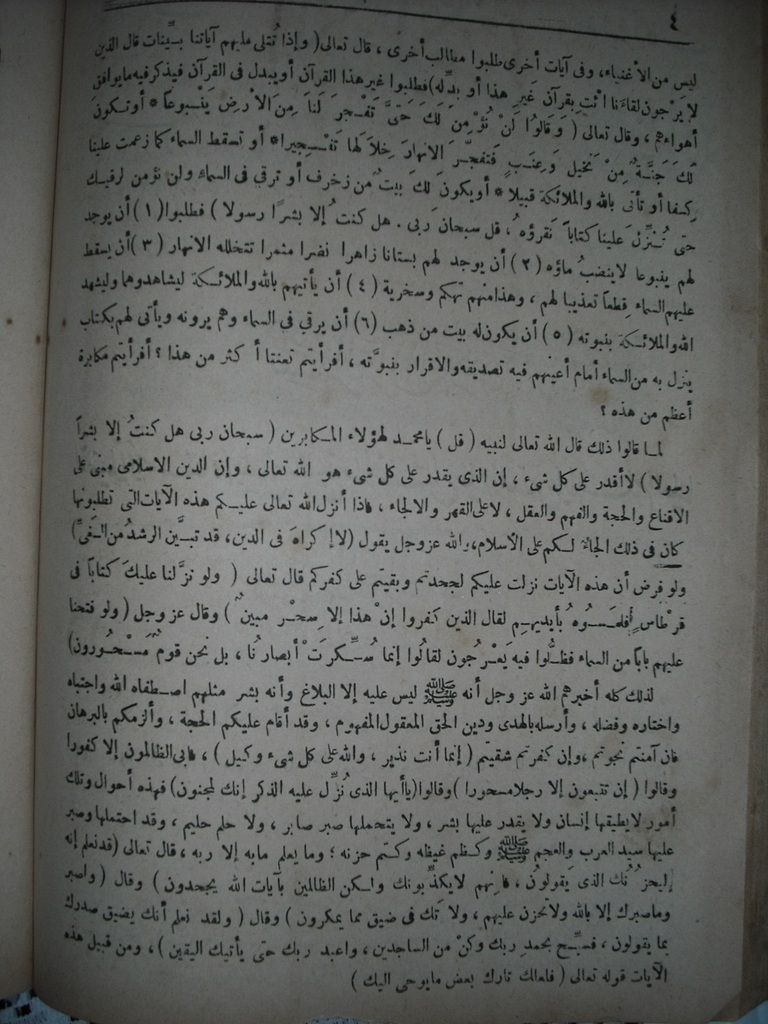 ٤
ليس من الأغنياء، وفى آيات أخرى طلبوا مطالب أخرى ، قال تعالى ( وإذا تُتلى عليهم آياتنا بيِّنات قال الذين
لا يَرْجون لقاءَنا ائْتِ بِقرآن غيرِ هذا أو بدِّله) فطلبوا غير هذا القرآن أو يبدل فى القرآن فيذكر فيه ما يوافق
أهواءهم ، وقال تعالى ( وَقَالُوا لَنْ نُؤْمِن لَكَ حَتَّى تَفْجرَ لَنَا مِنَ الأرْضِ يَنْبوعاً * أوتكونَ
لكَ جَنَّةٌ مِنْ نَخيل وَعِنَبٍ فَتفجِّرَ الأنهارَ خِلاَلها تَفْجيرا * أو تسقط السماء كما زعمت علينا
كِسفا أو تأتى بالله والملائكة قبيلا * أويكونَ لكَ بيتٌ من زخرف أو ترقى فى السماء ولن نؤمن لرقيك
حتى تُنَزِّلَ علينا كتاباً نقرؤه ، قل سبحان ربى . هل كنت إلا بشرًا رسولا ) فطلبوا (١) أن يوجد
لهم ينبوعا لاينضبُ ماؤه (٢) أن يوجد لهم بستانا زاهرا نضرا مثمرا تتخلله الأنهار (٣) أن يسقط
عليهم السماء قِطعاً تعذيبا لهم ، وهذا منهم تهكم وسخرية (٤) أن يأتيهم بالله والملائكة ليشاهدوهما وليشهد
الله والملائكة بنبوته (٥) أن يكون له بيت من ذهب (٦) أن يرقى فى السماء وهم يرونه ويأتى لهم بكتاب
ينزل به من السماء أمام أعينهم فيه تصديقه والاقرار بنبوَّته ، أفرأيتم تعنتا أكثر من هذا ؟ أفرأيتم مكابرة
أعظم من هذه ؟
لما قالوا ذلك قال الله تعالى لنبيه ( قل ) يامحمد لهؤلاء المكابرين ( سبحان ربى هل كنتُ إلا بشراً
رسولا ) لا أقدر على كل شىء ، إن الذى يقدر على كل شىء هو الله تعالى ، وإن الدين الاسلامى مبنى على
الاقناع والحجة والفهم والعقل ، لاعلى القهر والالجاء ، فاذا أنزل الله تعالى عليكم هذه الآيات التى تطلبونها
كان فى ذلك الجاء لكم على الاسلام، والله عز وجل يقول (لاإكراهَ فى الدين، قد تبيَّن الرشدُ من الغَىِّ)
ولو فرض أن هذه الآيات نزلت عليكم لجحدتم وبقيتم على كفركم قال تعالى ( ولو نزَّلنا عليكَ كتاباً فى
قرْطاس فلمَسُوهُ بأيديهم لقال الذين كفروا إنْ هذا إلا سحْر مبينٌ ) وقال عز وجل ( ولو فتحنا
عليهم باباً من السماء فظلُّوا فيه يَعْرُجون لقالُوا إنما سُكِّرَتْ أبصارُنا ، بل نحن قومٌ مَسْحُورون)
لذلك كله أخبرهم الله عز وجل أنه ﷺ ليس عليه إلا البلاغ وأنه بشر مثلهم اصطفاه الله واجتباه
واختاره وفضله ، وأرسله بالهدى ودين الحق المعقول المفهوم ، وقد أقام عليكم الحجة ، وألزمكم بالبرهان
فان آمنتم نجوتم ، وإن كفرتم شقيتم ( إنما أنت نذير ، والله على كل شىء وكيل ) ، فأبى الظالمون إلا كفورا
وقالوا ( إن تتبعون إلا رجلا مسحورا ) وقالوا (ياأيها الذى نُزِّل عليه الذكر إنك لمجنون) فهذه أحوال وتلك
أمور لايطيقها إنسان ولا يقدر عليها بشر ، ولا يتحملها صبر صابر ، ولا حلم حليم ، وقد احتملها وصبر
عليها سيد العرب والعجم ﷺ وكظم غيظه وكتم حزنه ؛ وما يعلم مابه إلا ربه ، قال تعالى (قدنعلم إنه
ليحزُنك الذى يقولون ، فانهم لايكذِّبونك ولكن الظالمين بآيات الله يجحدون ) وقال ( واصبر
وماصبرك إلا بالله ولا تحزن عليهم ، ولا تَك فى ضيق مما يمكرون ) وقال ( ولقد نعلم أنك يضيق صدرك
بما يقولون ، فسبِّح بحمد ربك وكنْ من الساجدين ، واعبد ربك حتى يأتيك اليقين ) ، ومن قبيل هذه
الآيات قوله تعالى ( فلعلك تارك بعض مايوحى اليك )